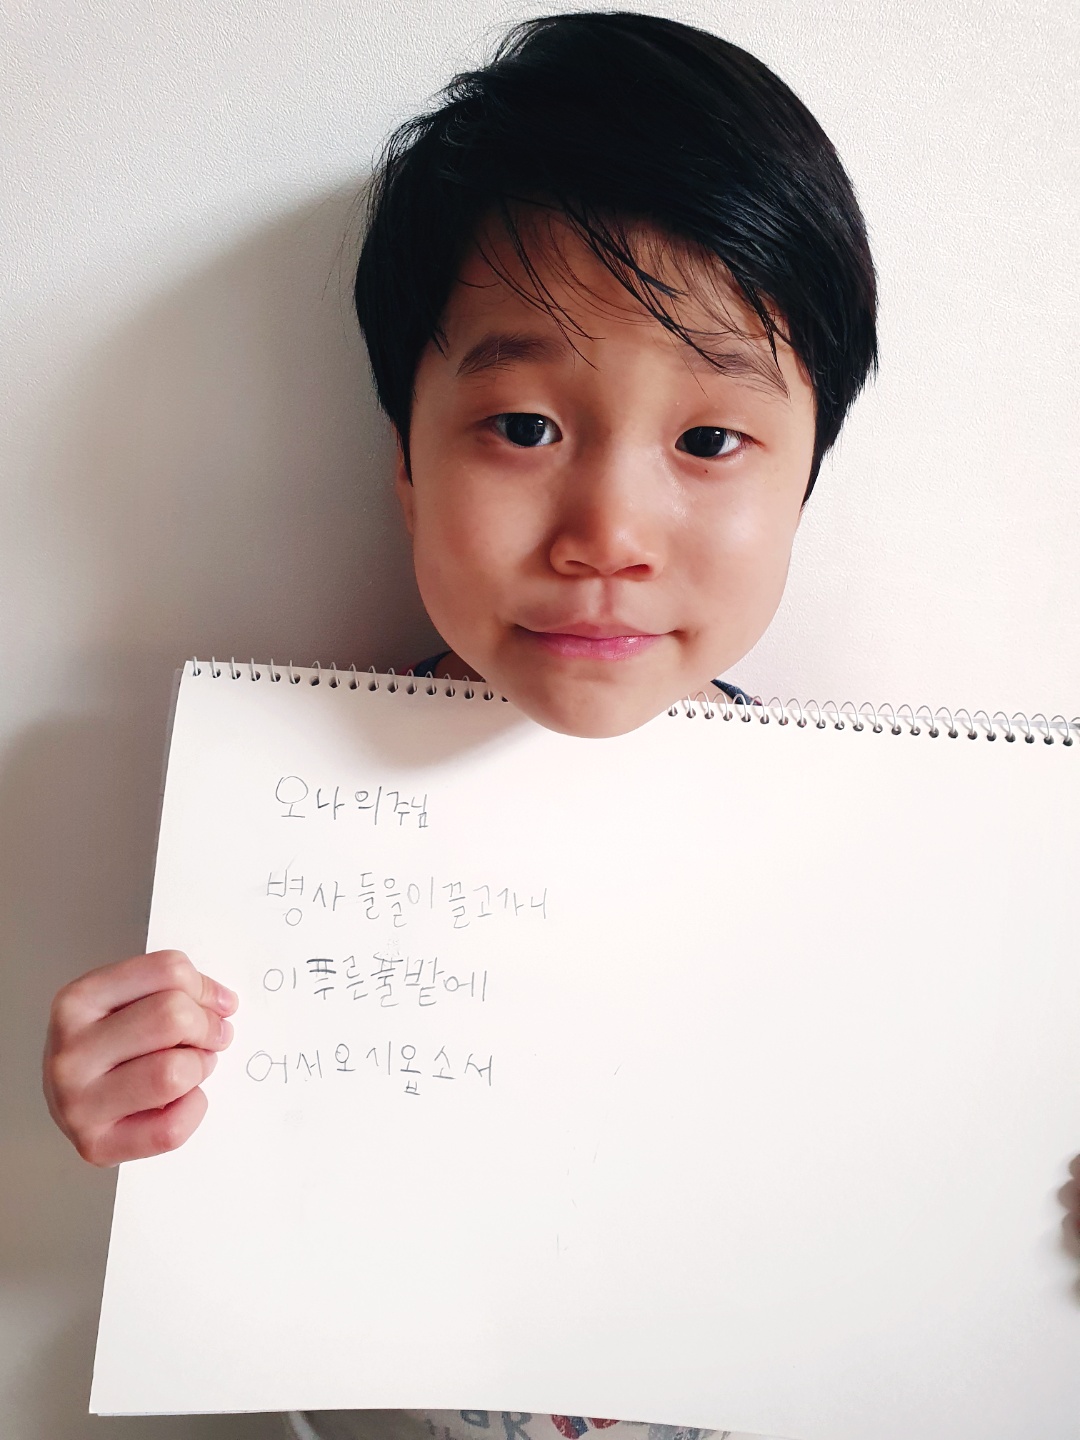 오나의주님
병사들을이끌고가니
이푸른풀밭에
어서오시옵소서